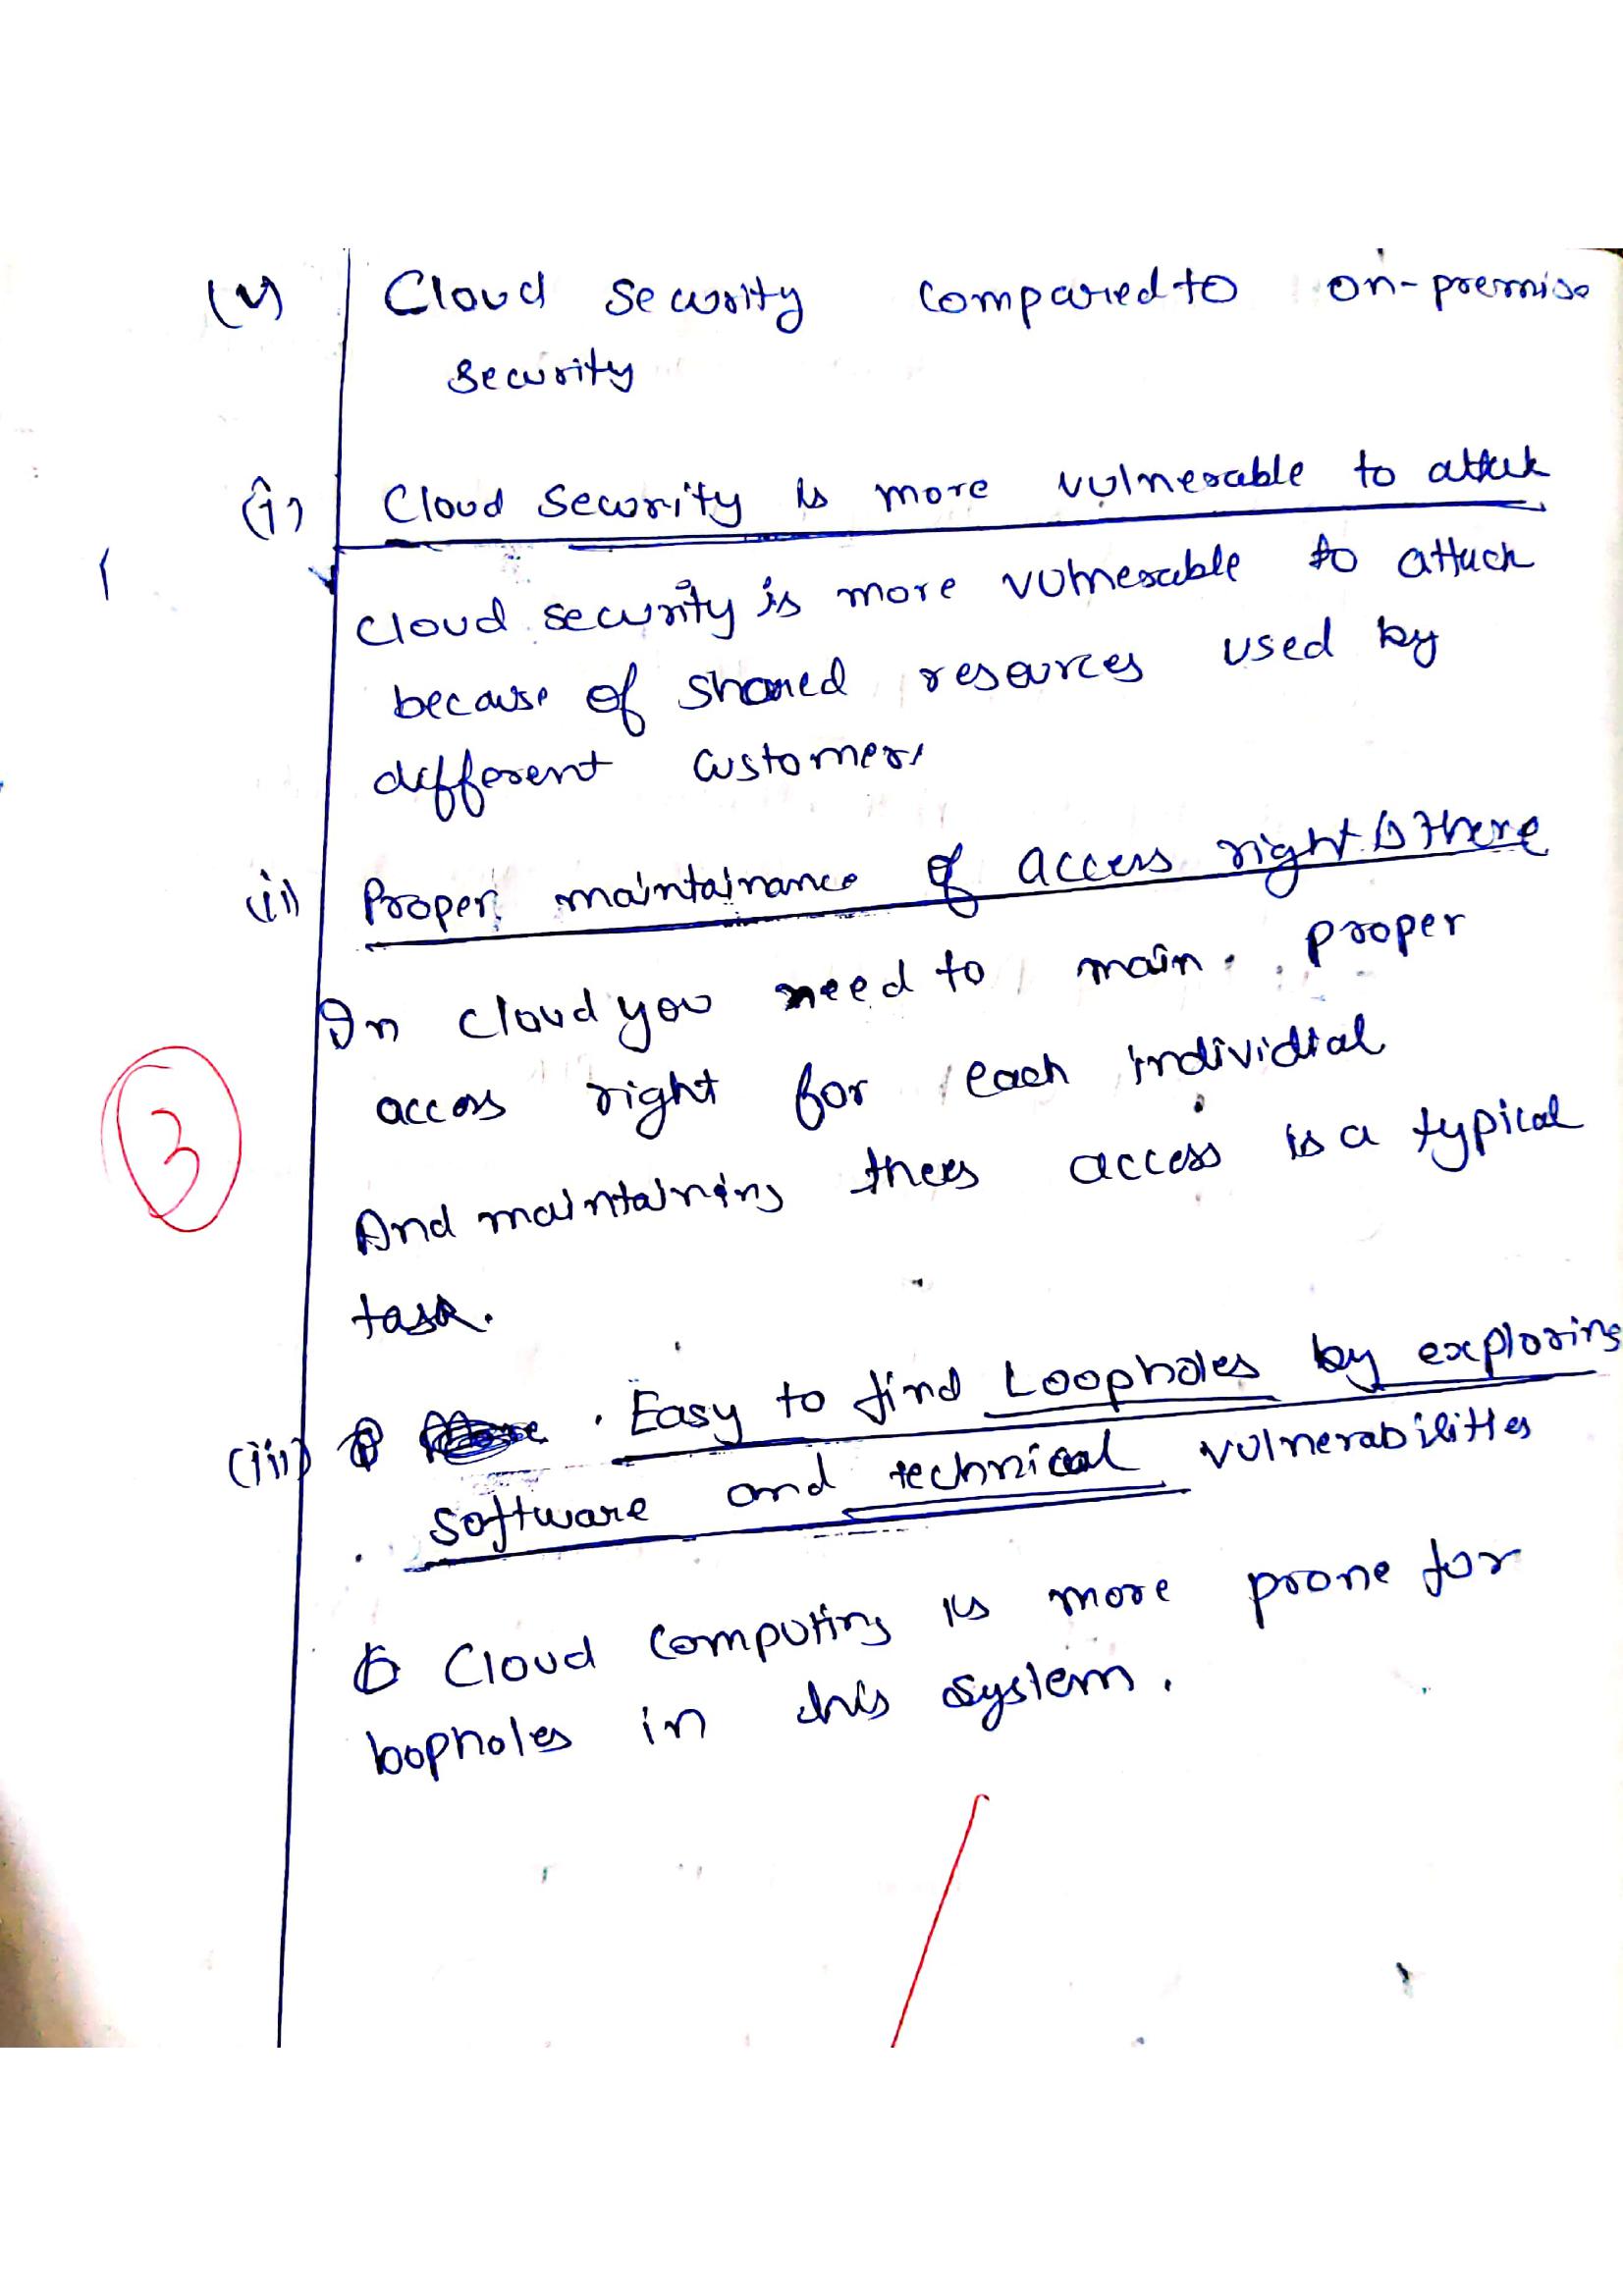 (v) Cloud security compared to on-premise
security
(i) Cloud security is more vulnerable to attack
cloud security is more vulnerable to attack
because of shared resources used by
different customers
(ii) Proper maintainance of access right is there
In cloud you need to main. proper
access right for each individial
3
And maintaining thees access is a typical
task.
(iii) Easy to find Loopholes by exploring
software and technical vulnerabilities
Cloud computing is more prone for
loopholes in this system.